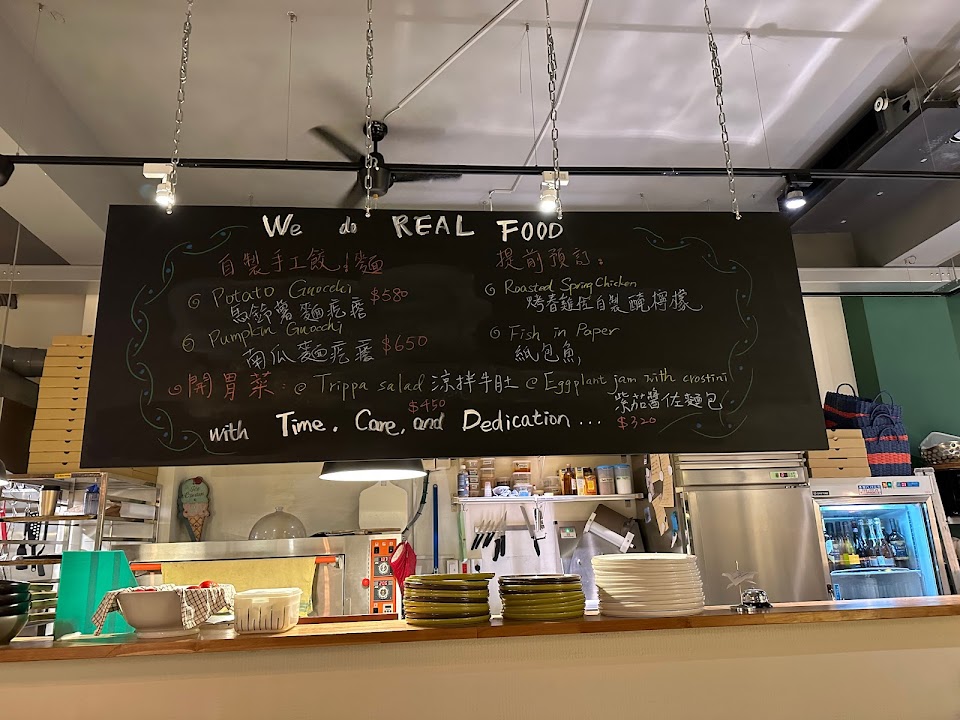 We do REAL FOOD
自製手工餃、麵
Potato Gnocchi
馬鈴薯麵疙瘩 $580
Pumpkin Gnocchi
南瓜麵疙瘩 $650
提前預訂:
Roasted Spring Chicken
烤春雞佐自製醃檸檬
Fish in Paper
紙包魚
開胃菜: @ Trippa salad 涼拌牛肚 @ Eggplant jam with crostini
$450
紫茄醬佐麵包
$320
with Time, Care, and Dedication ...